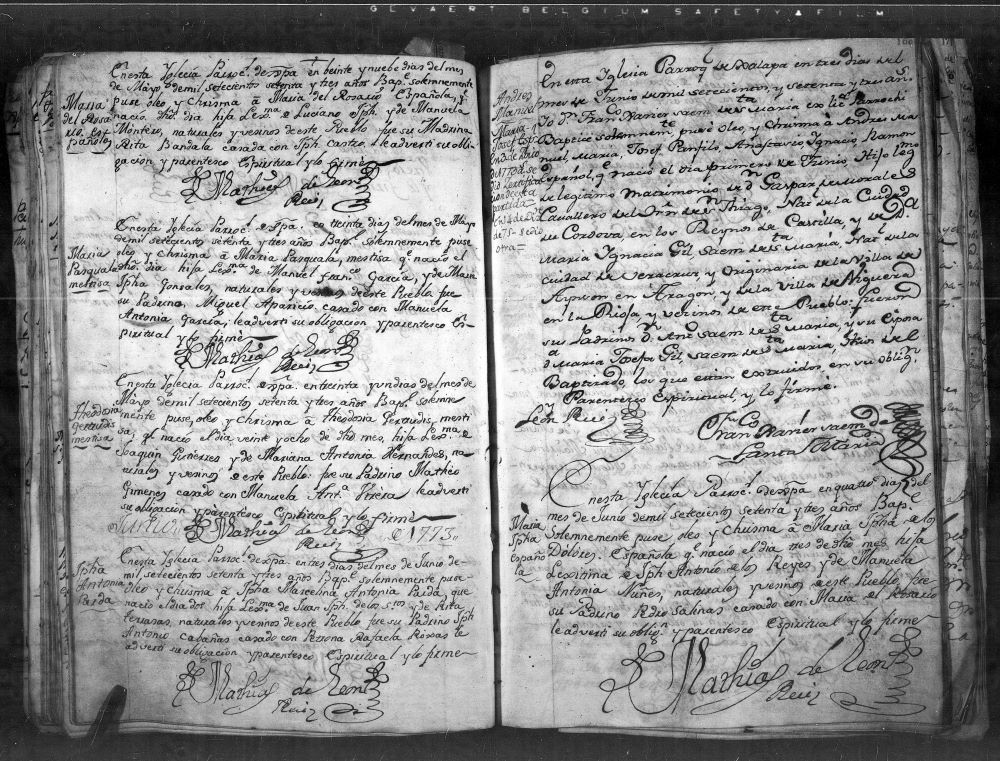 GEVAERT BELGIUM SAFETY FILM
En esta Iglecia Parroc.l de xpa en beinte y nuebe dias del mes
de Mayo de mil setecientos setenta y tres años Bap.e solemnemente
puse oleo y Chrisma â Maria del Rosario Española, q.
nacio dho. dia hija Lex.ma de Luciano Sph. y de Manuela
Montero, naturales y vesinos de este Pueblo fue su Madrina
Rita Bandala casada con Sph. Castro, le adverti su obli-
gacion y parentesco Espiritual y lo firmè
Maria
del Rosa
rio. Es
pañola
Mathias de Leon
Ruiz
En esta Iglecia Parroc.l de xpa. en treinta dias del mes de Mayo
de mil setecientos setenta y tres años Bap.e solemnemente puse
oleo y chrisma â Maria Pasquala, mestisa q. nacio el
dho. dia hija Lex.ma de Manuel fran.co Garcia, y de Maria
Spha Gonsales, naturales y vesinos de este Pueblo fue
su Padrino, Miguel Aparicio casado con Manuela
Antonia Garcia, le adverti su obligacion y parentesco Es-
piritual y lo firmè
Maria
Pasquala
mestisa
Mathias de Leon
Ruiz
En esta Iglecia Parroc.l de xpa. en treinta y un dias del mes de
Mayo de mil setecientos setenta y tres años Bap.e solemne
mente puse, oleo y Chrisma â Theodosia Gertrudis, mesti
sa, q. nacio el dia veinte y ocho de dho mes, hija Lex.ma de
Joaquin Gutierres y de Mariana Antonia Hernandes, na-
turales y vesinos de este Pueblo: fue su Padrino Matheo
Gimenes casado con Manuela Ant.a Utrera le adverti
su obligacion y parentesco Espiritual y lo firmè
Theodosia
gertrudis
mestisa
Mathias de Leon
Ruiz
Junio de 1773
En esta Iglecia Parroc.l de xpa. en tres dias del mes de Junio de
mil setecientos setenta y tres años Bap.e solemnemente puse
oleo y Chrisma â Spha Marcelina Antonia Parda, que
nacio el dia dos hija Lex.ma de Juan Sph. de los S.tos y de Rita
Terrasas, naturales y vesinos de este Pueblo fue su Padrino Sph.
Antonio Cabañas casado con Petrona Rafaela Roxas le
adverti su obligacion y parentesco Espiritual y lo firmè
Spha
Antonia
Parda
Mathias de Leon
Ruiz
En esta Iglesia Parroq.l de Xalapa en tres dias del
mes de Junio de mil setecientos, y setenta, y tres años
Yo D.n Fran.co Xavier Saem de S.ta Maria ex lic.a Parrochi
Baptice solemnem.te, puse oleo y Chrisma à Andres Ma
nuel, Maria, Josef, Panfilo, Anastacio, Ignacio, Ramon
Español, q.e nació el dia primero de Junio, Hijo leg.mo
de legitimo Matrimonio de D.n Gaspar de Morales
Cavallero del Orn. de S.n Thiago, Nat. de la Ciudad
de Cordova, en los Reynos de Castilla, y de D.a
Maria Ignacia Gil Saem de S.ta Maria, Nat. de la
Ciudad de Veracruz, y Originaria de la Villa de
en Aragon, y de la Villa de Viguera
en la Rioja, y vecinos de este Pueblo: fueron
sus Padrinos D.n Ant.o Saem de S.ta Maria, y su Esposa
D.a Maria Josefa Gil, Saem de S.ta Maria, Tios del
Baptizado, los que estan instruidos, en su oblig.n
Parentesco Espiritual, y lo firme.
Andres
Manuel
Maria y
Josef Esp.l
de 1770. se
dio certifica
cion de esta
partida
de 75 se dio
otra
Leôn Ruiz
Fran.co Xavier Saem de
Santa Maria
En esta Iglecia Parroc.l de xpa. en quatro dias del
mes de Junio de mil setecientos setenta y tres años Bap.e
solemnemente puse oleo y Chrisma â Maria Spha de los
Dolores. Española q. nacio el dia tres de dho mes hija
Lexitima de Sph Antonio de los Reyes y de Manuela
Antonia Nuñes, naturales y vesinos de este Pueblo, fue
su Padrino Pedro Salinas casado con Maria el Rosario
le adverti su oblig.n y parentesco Espiritual y lo firmè
Maria
Spha
Españo
la
Mathias de Leon
Ruiz